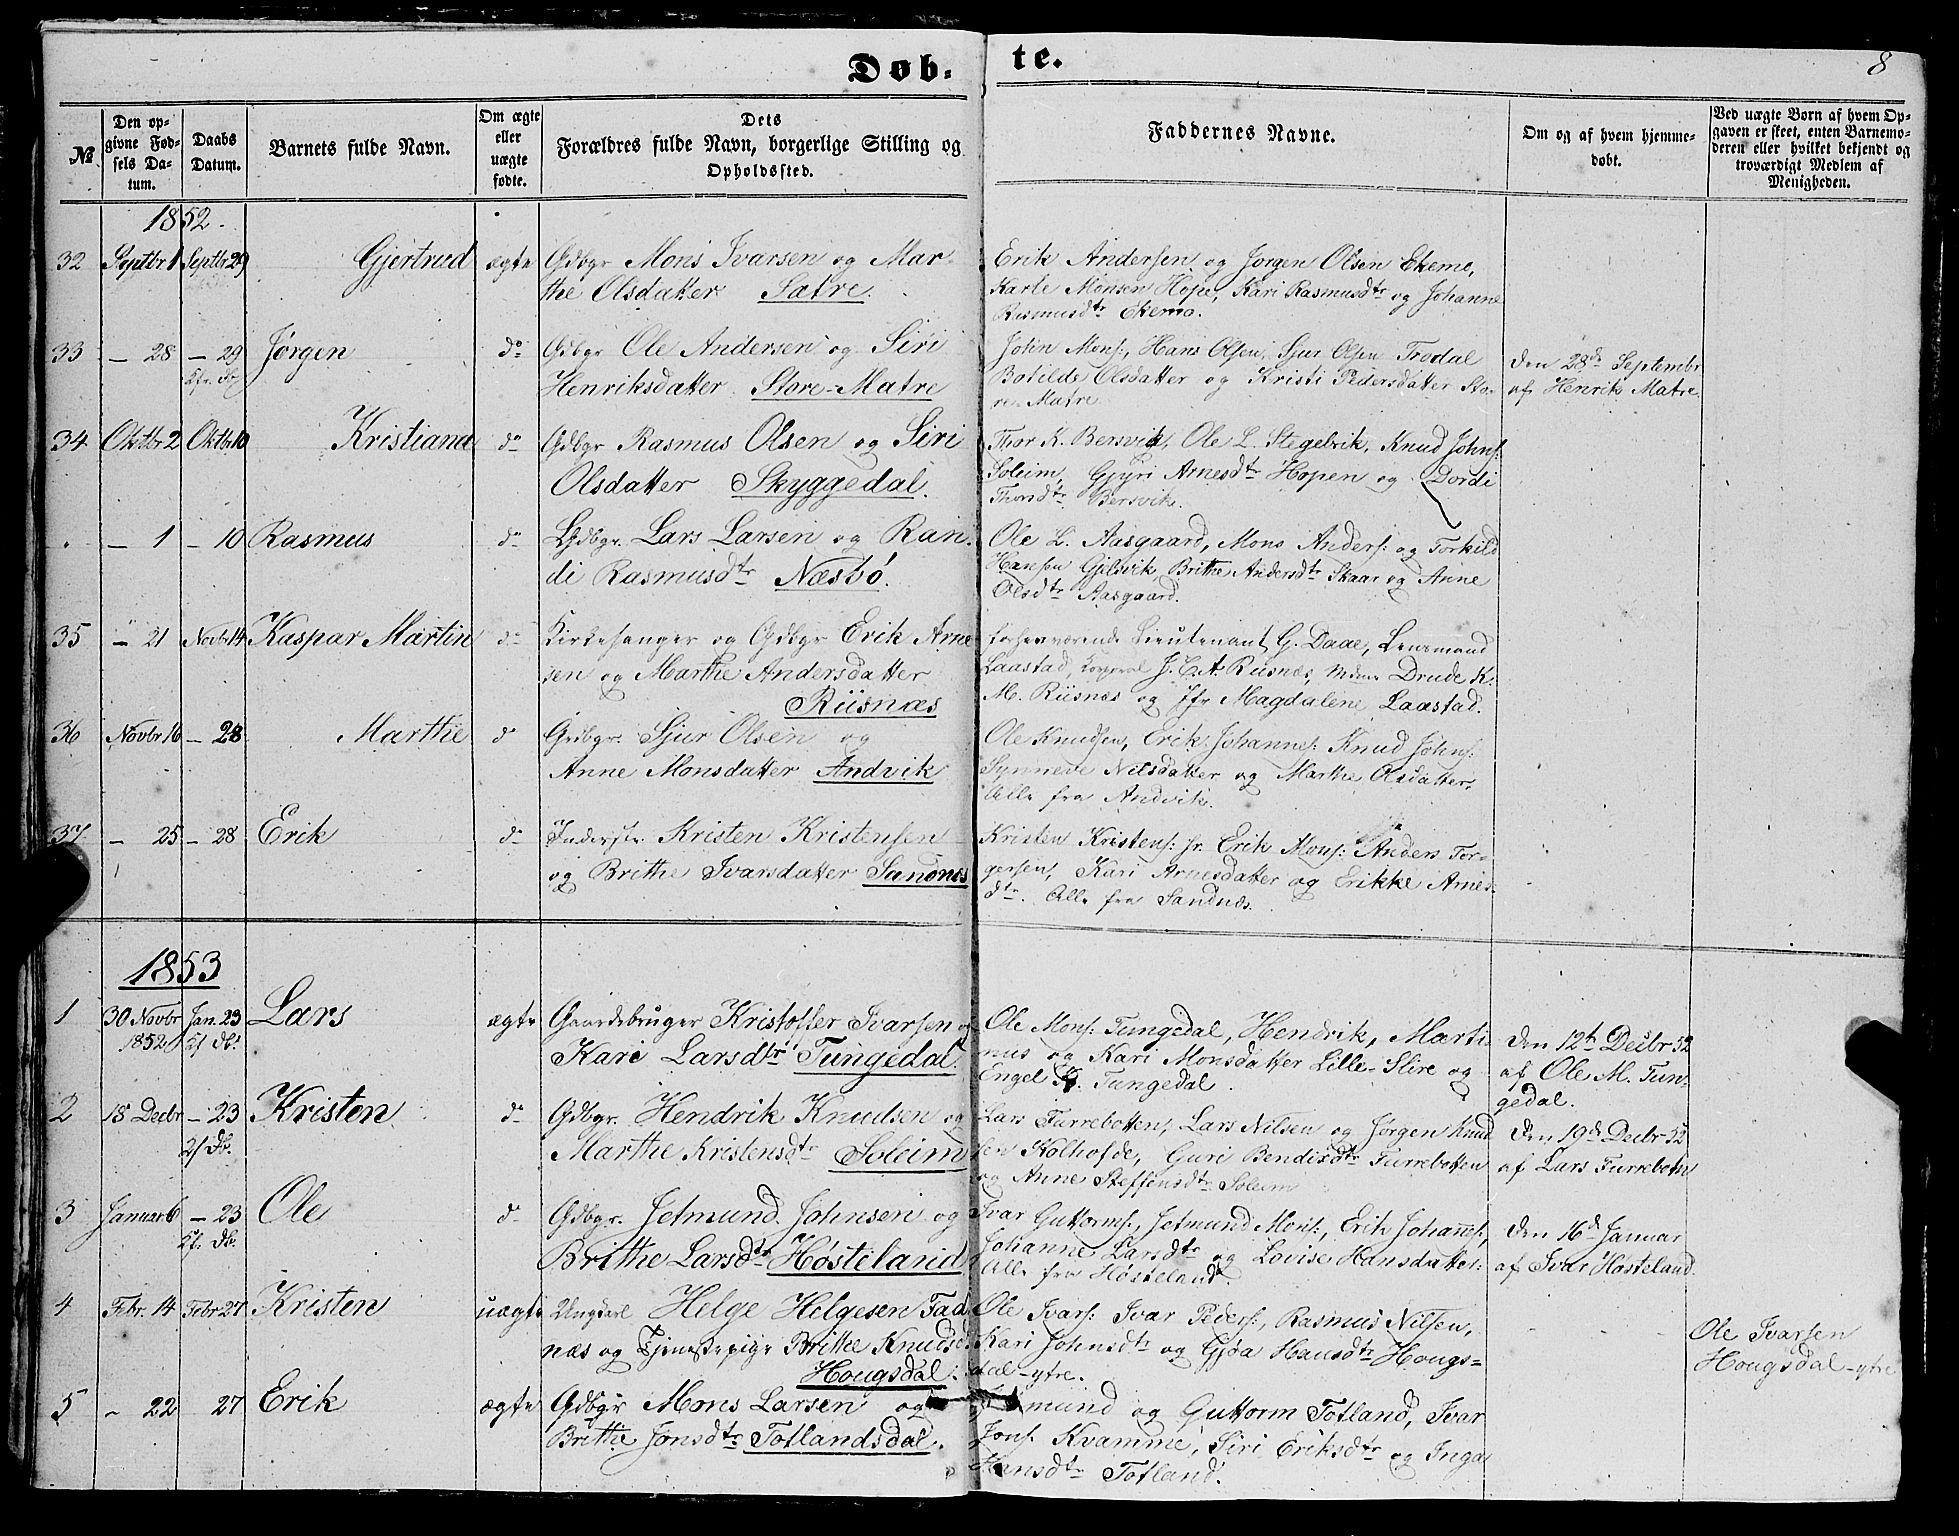 Døb-te.
8
№
Den opgivne Fødsels Datum.
Daabs Datum.
Barnets fulde Navn.
Om ægte eller uægte fødte.
Dets Forældres fulde Navn, borgerlige Stilling og Opholdssted.
Faddernes Navne.
Om og af hvem hjemmedøbt.
Ved uægte Børn af hvem Opgaven er skeet, enten Barnemoderen eller hvilket bekjendt og troværdigt Medlem af Menigheden.
1852.
32 Septbr 1 Septbr 29 Gjertrud ægte Gdbgr Mons Ivarsen og Mar-
the Olsdatter Sætre.
Erik Andersen og Jørgen Olsen Ekeme,
Karle Monsen Hope, Kari Rasmusdtr og Johanne
Rasmusdtr Ekemo.
33 – 28 – 29 Jørgen do Gdbgr Ole Andersen og Siri
Henriksdatter Store-Matre
John Mons:, Hans Olsen, Sjur Olsen Trodal
Botilde Olsdatter og Kristi Pedersdatter Sto-
re-Matre
Den 28de Septembr
af Henrik Matre
34 Oktbr 2 Oktbr 10 Kristiana do Gdbgr Rasmus Olsen og Siri
Olsdatter Skyggedal.
Thor K. Bersvik, Ole L. Stegelvik, Knud Johns:
Soleim, Gjyri Arnesdtr Hopen og Dordi
Thorsdtr Bersvik.
– 1 – 10 Rasmus do Gdbgr. Lars Larsen og Ran-
di Rasmusdtr Næsbø.
Ole L. Aasgaard, Mons Anders: og Torkild
Hansen Gilsvik, Brithe Andersdtr Skaar og Anne
Olsdtr Aasgaard.
35 – 21 Novbr 14 Kaspar Martin do Kirkesanger og Gdbgr Erik Arne
sen og Marthe Andersdatter
Riisnæs
forhenværende Lieutenant G. Daae, Lensmand
Laastad, Korporal J. C. A. Riisnæs, Mdme Drude K.
M. Riisnæs og Jfr Magdalene Laastad.
36 Novbr 16 – 28 Marthe do Gdbgr. Sjur Olsen og
Anne Monsdatter Andvik
Ole Knudsen, Erik Johannes: Knud Johns:
Synneve Nilsdatter og Marthe Olsdatter,
Alle fra Andvik.
37 – 25 – 28 Erik do Inderstr. Kristen Kristensen
og Brithe Ivarsdatter Sandnæs
Kristen Kristens: sr. Erik Mons: Anders Tor-
gersen, Kari Arnesdatter og Erikke Arnes-
dtr. Alle fra Sandnæs.
1853
1 30 Novbr 1852 Jan. 23 Lars ægte Gaardsbruger Kristoffer Ivarsen og
Kari Larsdtr Tungedal.
Ole Mons: Tungedal, Hendrik, Marti-
nus og Kari Monsdatter Lille-Slire og
Engel K. Tungedal.
Den 12te Decbr 52
af Ole M. Tun-
gedal.
2 18 Decbr – 23 Kristen do Gdbgr. Hendrik Knudsen og
Marthe Kristensdtr Soleim
Lars Furrebotten, Lars Nilsen og Jørgen Knud
sen Kolhofde, Guri Bendixdtr Furrebotten
og Anne Steffensdtr Soleim
Den 19de Decbr 52
af Lars Furrebotn
3 Januar 6 – 23 Ole do Gdbgr. Jetmund Johnsen og
Brithe Larsdtr Høsteland
Ivar Guttorms:, Jetmund Mons:, Erik Johanns:,
Johanne Larsdtr og Lovise Hansdatter
Alle fra Høsteland.
Den 16de Januar
af Ivar Høsteland.
4 Febr. 14 Febr 27 Kristen uægte Ungkarl Helge Helgesen Fad
næs og Tjenestepige Brithe Knudsd.
Hougsdal.
Ole Ivars: Ivar Peders:, Rasmus Nilsen,
Kari Johnsdtr og Gjøa Hansdtr Hougs-
dal-ytre.
Ole Ivarsen
Hougsdal-ytre
5 – 22 27 Erik ægte Gdbgr Mons Larsen og
Brithe Jonsdtr Totlandsdal.
mund og Guttorm Totland, Ivar
Jons: Kvamme, Siri Eriksdtr og Inga
Hansdtr Totland.